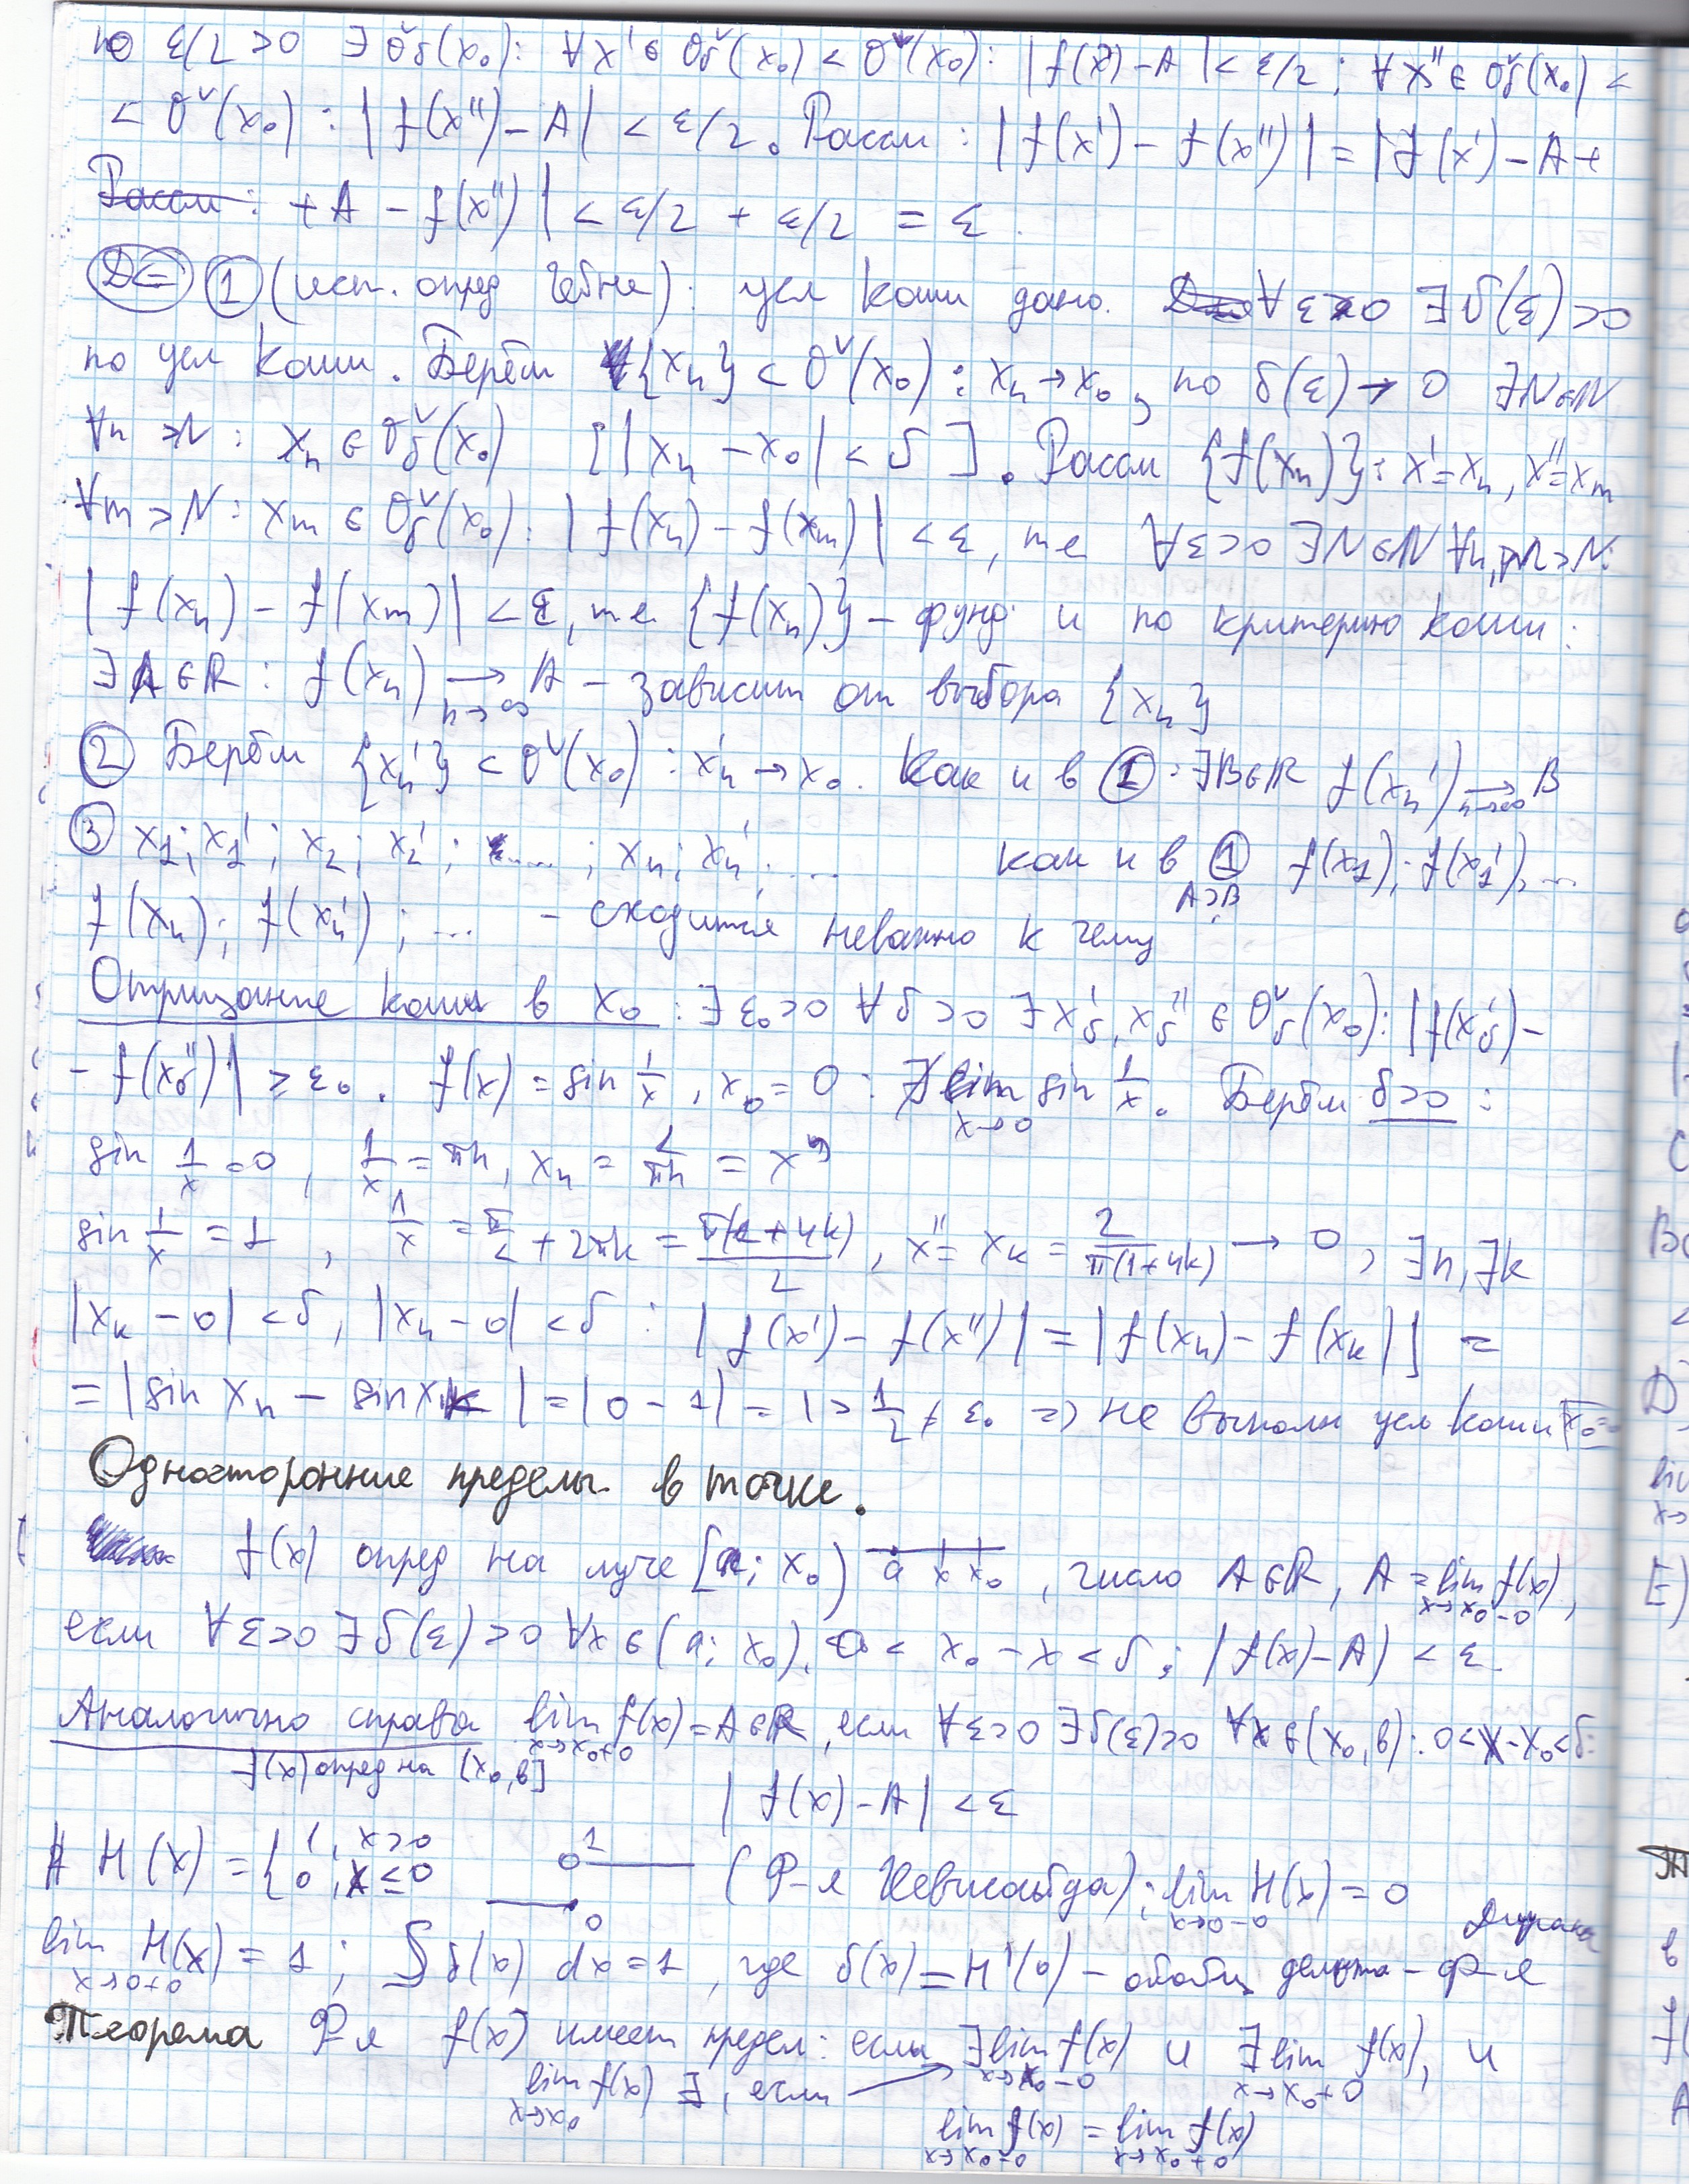 по ε/2 >0 ∃ Ŏδ(x₀): ∀x' ∈ Ŏδ(x₀) ⊂ Ŏ(x₀): |f(x')-A| < ε/2; ∀x'' ∈ Ŏδ(x₀) ⊂
⊂ Ŏ(x₀): |f(x'')-A| < ε/2. Рассм: |f(x') - f(x'')| = |f(x') - A +
+ A - f(x'')| < ε/2 + ε/2 = ε.
D⇐ ① (исп. опред Гейне): усл Коши дано. ∀ε>0 ∃δ(ε)>0
по усл Коши. Берём {xₙ} ⊂ Ŏ(x₀): xₙ→x₀, по δ(ε)>0 ∃N∈ℕ
∀n>N: xₙ ∈ Ŏδ(x₀) [|xₙ - x₀| < δ]. Рассм {f(xₙ)}: x'=xₙ, x''=xₘ
∀m>N: xₘ ∈ Ŏδ(x₀): |f(xₙ) - f(xₘ)| < ε, те ∀ε>0 ∃N∈ℕ ∀n,m>N:
|f(xₙ) - f(xₘ)| < ε, те {f(xₙ)} - фунд и по критерию Коши:
∃A∈ℝ: f(xₙ) →ₙ→∞ A - зависит от выбора {xₙ}
② Берём {xₙ'} ⊂ Ŏ(x₀): xₙ'→x₀. Как и в ①: ∃B∈ℝ f(xₙ') →ₙ→∞ B
③ x₁; x₁'; x₂; x₂'; ....; xₙ; xₙ'; ... как и в ① f(x₁); f(x₁'), ...
A=B
f(xₙ); f(xₙ'); ... - сходится неважно к чему
Отрицание Коши в x₀: ∃ε₀>0 ∀δ>0 ∃x'δ, x''δ ∈ Ŏδ(x₀): |f(x'δ) -
- f(x''δ)| ≥ ε₀. f(x) = sin 1/x, x₀ = 0: ∄ lim x→0 sin 1/x. Берём δ>0:
sin 1/x = 0, 1/x = πn, xₙ = 1/πn = x'
sin 1/x = 1, 1/x = π/2 + 2πk = π(1+4k)/2, x'' = xₖ = 2/π(1+4k) → 0, ∃n, ∃k
|xₖ - 0| < δ, |xₙ - 0| < δ: |f(x') - f(x'')| = |f(xₙ) - f(xₖ)| =
= |sin xₙ - sin xₖ| = |0 - 1| = 1 > 1/2 = ε₀ => не выполн усл Коши x₀=0
Односторонние пределы в точке.
f(x) опред на луче [a; x₀) a x x₀, число A∈ℝ, A = lim x→x₀-0 f(x),
если ∀ε>0 ∃δ(ε)>0 ∀x∈(a; x₀), 0 < x₀ - x < δ: |f(x)-A| < ε.
Аналогично справа lim x→x₀+0 f(x) = A∈ℝ, если ∀ε>0 ∃δ(ε)>0 ∀x∈(x₀, в): 0<x-x₀<δ:
f(x) опред на (x₀, в] |f(x)-A| < ε
H(x) = { 1, x>0
0, x≤0 1 0 (Ф-я Хевисайда): lim x→0-0 H(x) = 0
lim x→0+0 H(x) = 1; ∫ δ(x) dx = 1, где δ(x) = H'(x) - обобщ дельта-ф-я Дирака
Теорема Ф-я f(x) имеет предел: если ∃ lim x→x₀-0 f(x) и ∃ lim x→x₀+0 f(x), и
lim x→x₀ f(x) ∃, если
lim x→x₀-0 f(x) = lim x→x₀+0 f(x)